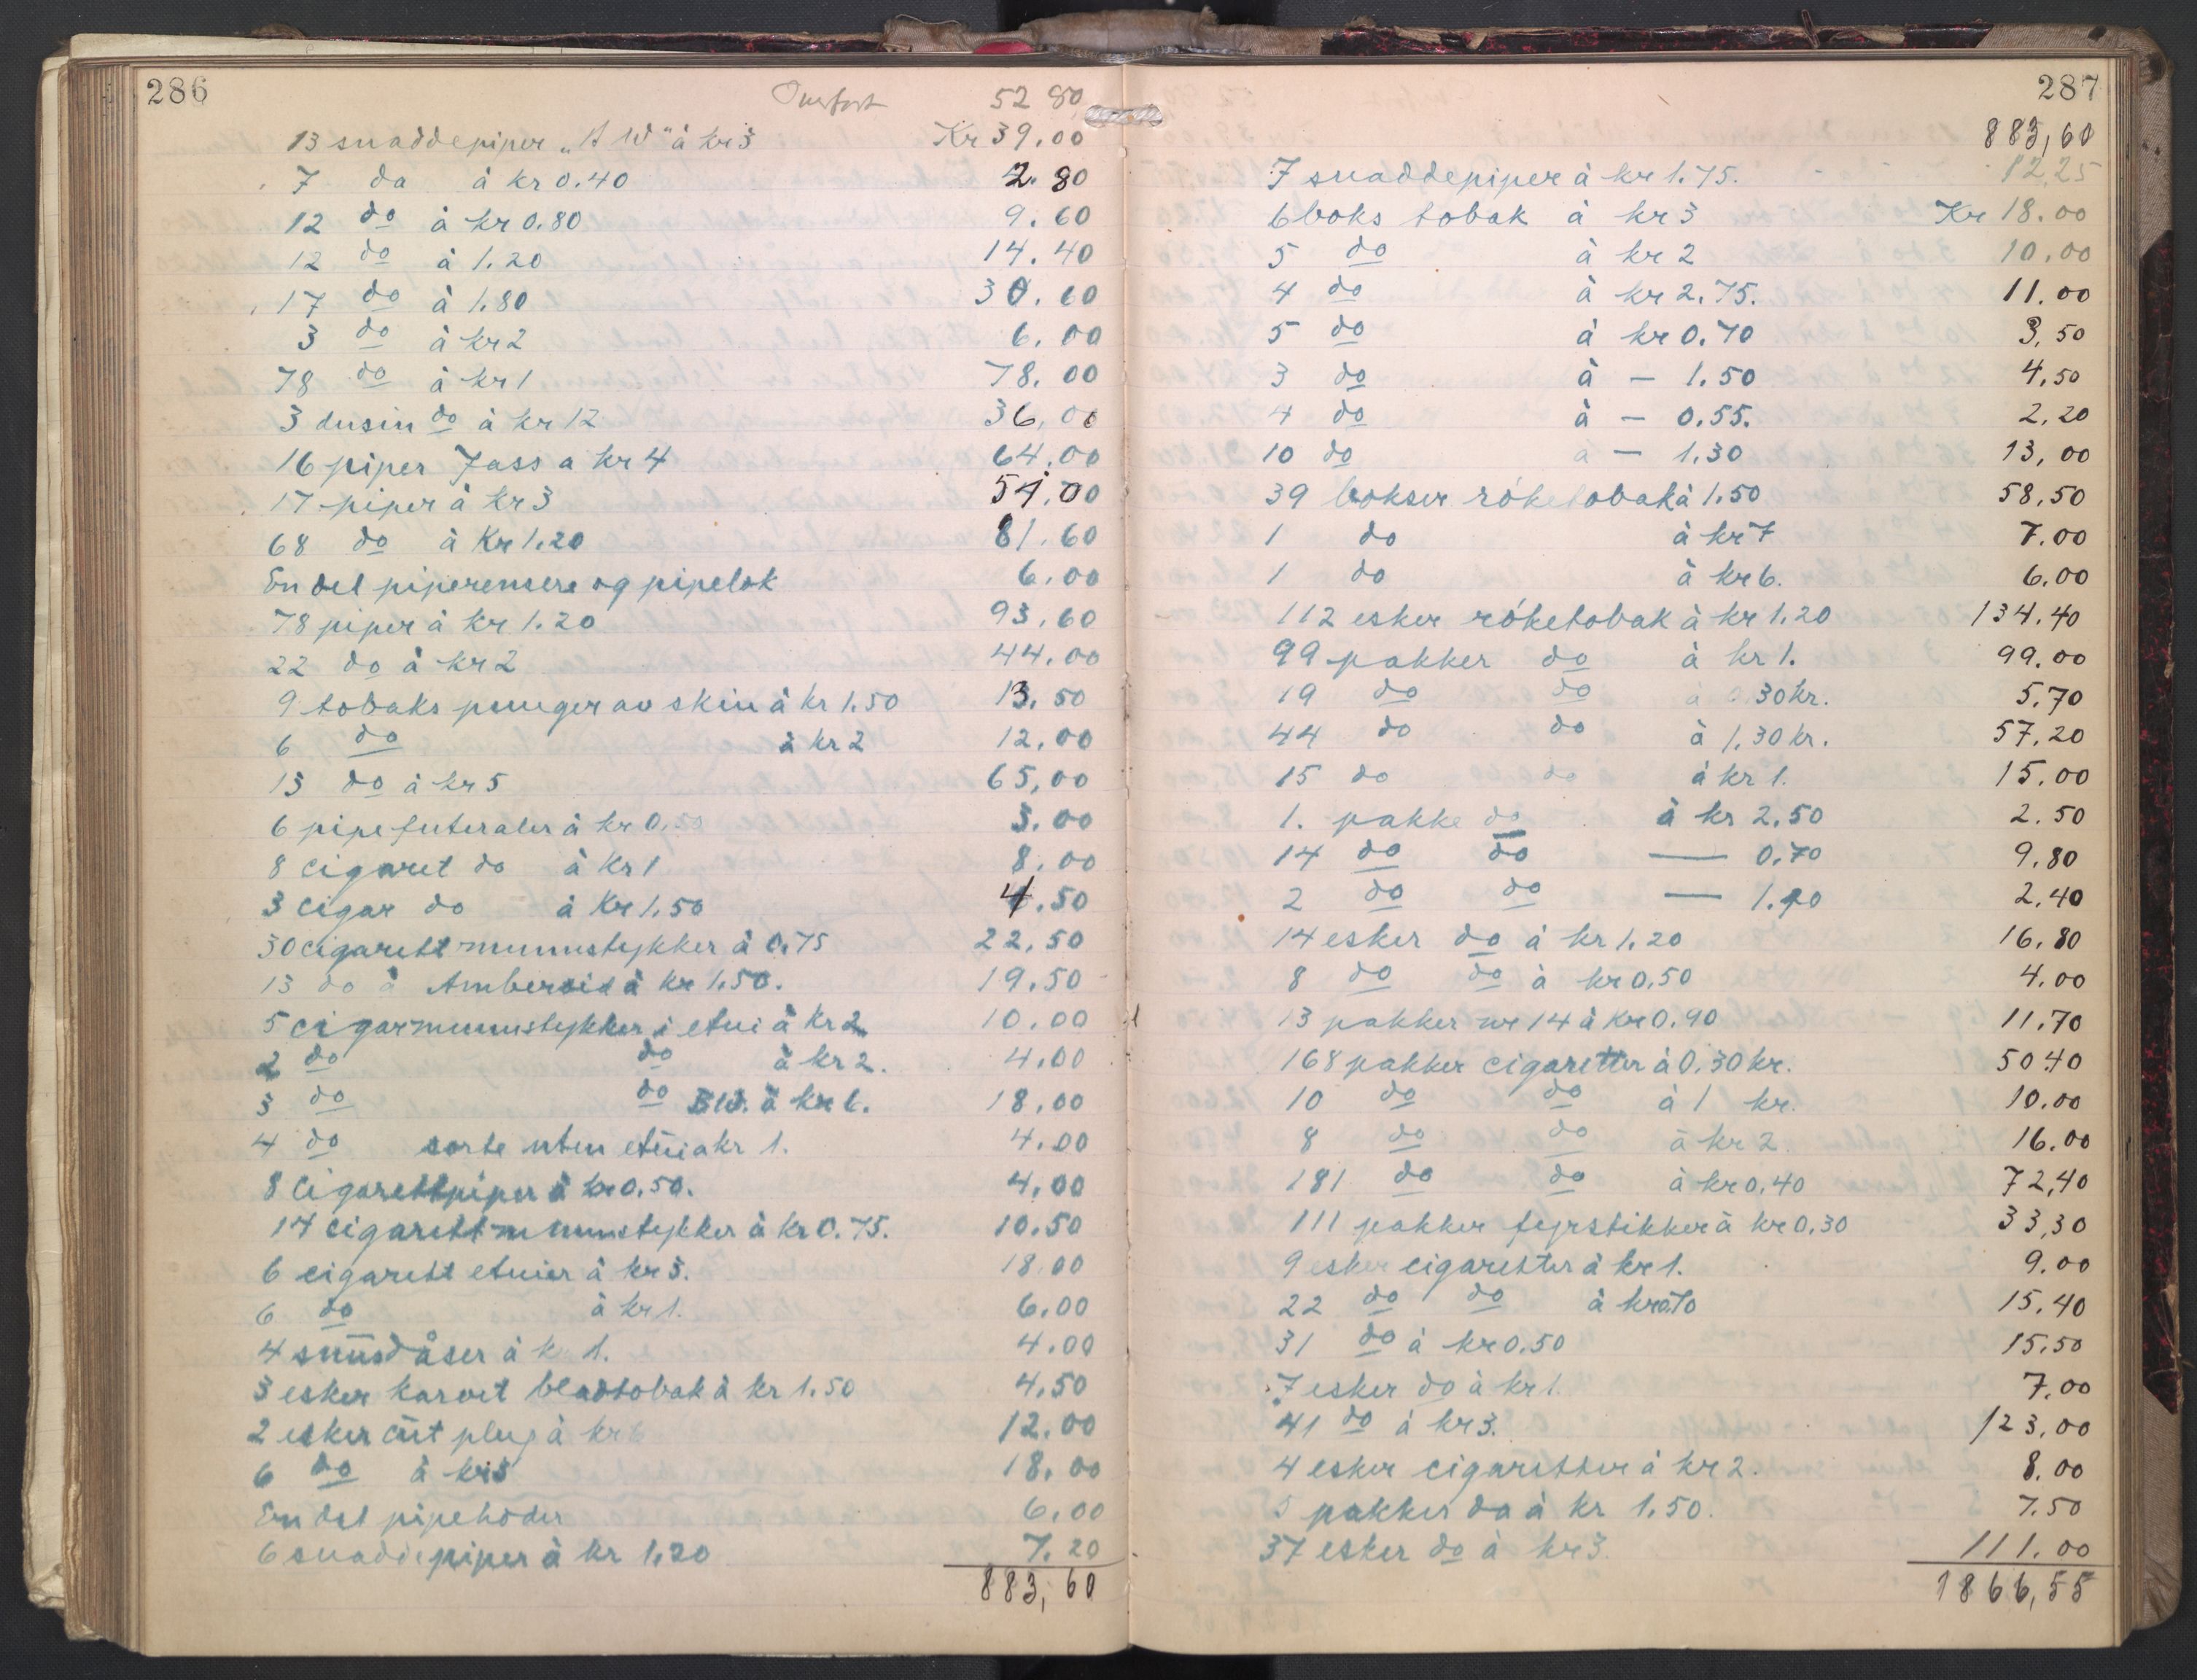 286
Overført 52 80
13 snaddepiper „B W" à kr 3 Kr 39.00
7 do à kr 0.40 2.80
12 do à kr 0.80 9.60
12 do à 1.20 14.40
17 do à 1.80 30.60
3 do à kr 2 6.00
78 do à kr 1 78.00
3 dusin do à kr 12 36,00
16 piper Jass a kr 4 64.00
17 piper à kr 3 51.00
68 do à Kr 1.20 81.60
En del piperensere og pipelok 6.00
78 piper à kr 1.20 93.60
22 do à kr 2 44.00
9 tobaks punger av skin à kr 1.50 13.50
6 do à kr 2 12.00
13 do à kr 5 65,00
6 pipefuteraler à kr 0.50 3.00
8 cigaret do à kr 1 8.00
3 cigar do à Kr 1.50 4.50
30 cigarett munnstykker à 0.75 22.50
13 do à Amberoid à kr 1.50. 19.50
5 cigarmunnstykker i etui à kr 2 10.00
2 do do à kr 2. 4.00
3 do do B W. à kr 6. 18.00
4 do sorte uten etui a kr 1. 4.00
8 Cigarettpiper à kr 0.50. 4.00
14 cigarett munnstykker à kr 0.75. 10.50
6 cigarett etuier à kr 3. 18.00
6 do à kr 1. 6.00
4 snusdåser à k 1. 4.00
3 esker karvet bladtobak à kr 1.50 4.50
2 esker cut plug à kr 6 12.00
6 do à kr 3 18.00
En del pipehoder 6.00
6 snaddepiper à kr 1.20 7.20
883,60
287
883,60
7 snaddepiper à kr 1.75. 12.25
6 boks tobak à kr 3 Kr 18.00
5 do à kr 2 10.00
4 do à kr 2.75. 11.00
5 do à kr 0.70 3,50
3 do à — 1.50 4,50
4 do à — 0.55. 2,20
10 do a — 1.30 13,00
39 bokser röketobak à 1.50 58,50
1 do à kr 7 7.00
1 do à kr 6. 6.00
112 esker röketobak à kr 1.20 134.40
99 pakker do à kr 1. 99.00
19 do do à 0.30 kr. 5.70
44 do do à 1.30 kr. 57.20
15 do do à kr 1. 15.00
1. pakke do à kr 2.50 2.50
14 do do — 0.70 9.80
2 do do — 1.20 2.40
14 esker do à kr 1.20 16.80
8 do do à kr 0.50 4.00
13 pakker nr 14 à kr 0.90 11.70
168 pakker cigaretter à 0.30 kr. 50.40
10 do do à 1 kr. 10.00
8 do do à kr 2 16.00
181 do do à kr 0.40 72,40
111 pakker fyrstikker à kr 0.30 33,30
9 esker cigaretter à kr 1. 9.00
22 do do à kr 0.70 15.40
31 do à kr 0.50 15.50
7 esker do à kr 1 7.00
41 do à kr 3. 123,00
4 esker cigaretter à kr 2. 8.00
5 pakker do à kr 1.50. 7.50
37 esker do à kr 3. 111.00
1866,55